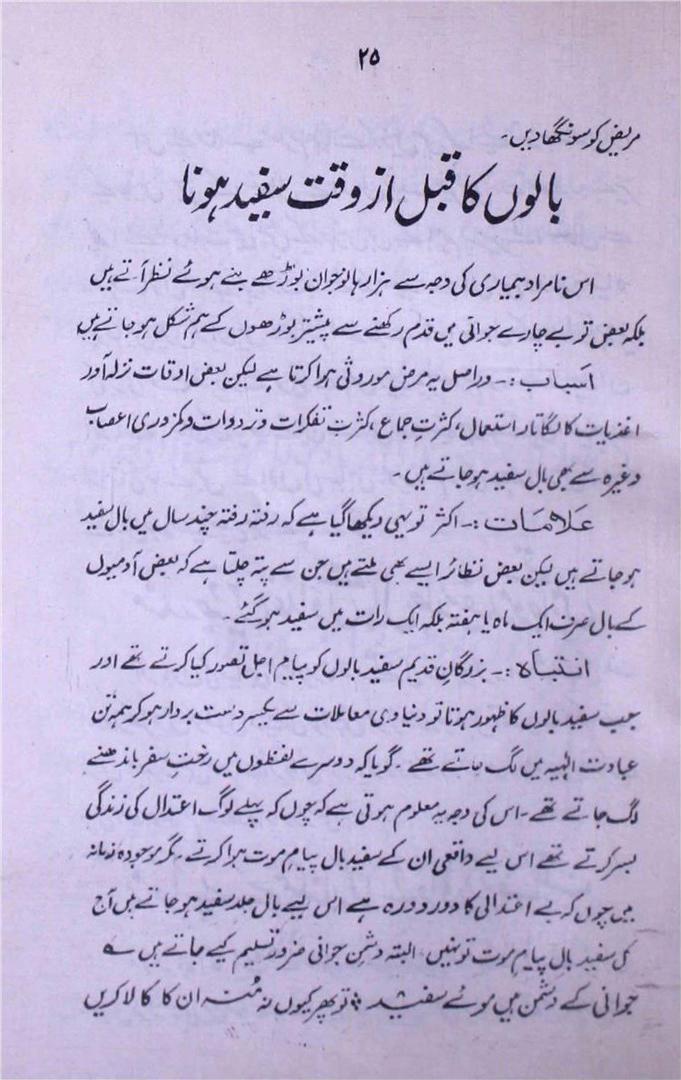 ۲۵
مریض کو سونگھادیں۔
بالوں کا قبل از وقت سفید ہونا
اس نامراد بیماری کی وجہ سے ہزارہا نوجوان بوڑھے بنے ہوئے نظر آتے ہیں
بلکہ بعض تو بے چارے جوانی میں قدم رکھنے سے پیشتر بوڑھوں کے ہم شکل ہو جاتے ہیں
اسباب :۔ دراصل یہ مرض موروثی ہوا کرتا ہے لیکن بعض اوقات نزلہ آور
اغذیات کا لگاتار استعمال، کثرتِ جماع، کثرت تفکرات و تردوات و کمزوری اعصاب
وغیرہ سے بھی بال سفید ہو جاتے ہیں۔
علامات :۔ اکثر تو یہی دیکھا گیا ہے کہ رفتہ رفتہ چند سال میں بال سفید
ہو جاتے ہیں لیکن بعض نظائر ایسے بھی ملتے ہیں جن سے پتہ چلتا ہے کہ بعض آدمیوں
کے بال صرف ایک ماہ یا ہفتہ بلکہ ایک رات میں سفید ہو گئے۔
انتباہ :۔ بزرگانِ قدیم سفید بالوں کو پیام اجل تصور کیا کرتے تھے اور
جب سفید بالوں کا ظہور ہوتا تو دنیاوی معاملات سے یکسر دست بردار ہو کر ہمہ تن
عبادت الٰہیہ میں لگ جاتے تھے۔ گویا کہ دوسرے لفظوں میں رختِ سفر باندھنے
لگ جاتے تھے۔ اس کی وجہ یہ معلوم ہوتی ہے کہ چوں کہ پہلے لوگ اعتدال کی زندگی
بسر کرتے تھے اس لیے واقعی ان کے سفید بال پیامِ موت ہوا کرتے۔ مگر موجودہ زمانہ
میں چوں کہ بے اعتدالی کا دور دورہ ہے اس لیے بال جلد سفید ہو جاتے ہیں آج
کل سفید بال پیام موت تو نہیں البتہ دشمنِ جوانی ضرور تسلیم کیے جاتے ہیں ؎
جوانی کے دشمن ہیں موئے سفید ؛ تو پھر کیوں نہ مُنہ ان کا کالا کریں